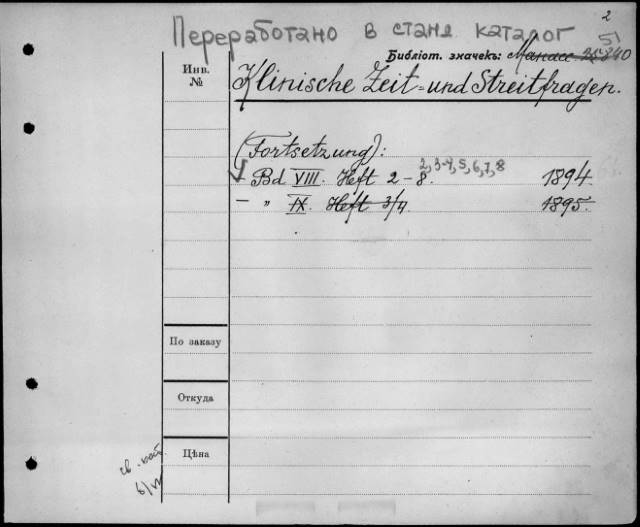 2
Переработано в станд каталог
51
Библіот. значекъ: Манасс 25340
Инв.
№
Klinische Zeit- und Streitfragen.
(Fortsetzung):
Bd VIII. Heft 2-8. 2,3-4,5,6,7,8 1894.
— " IX. Heft 3/4 1895.
По заказу
Откуда
Цѣна